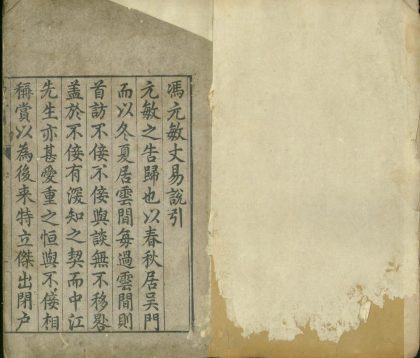 馮元敏丈易說引
元敏之告歸也以春秋居吴門
而以冬夏居雲間每過雲間則
首訪不佞不佞與談無不移晷
盖於不佞有深知之契而中江
先生亦甚愛重之恒與不佞相
稱賞以為後来特立傑出閉户